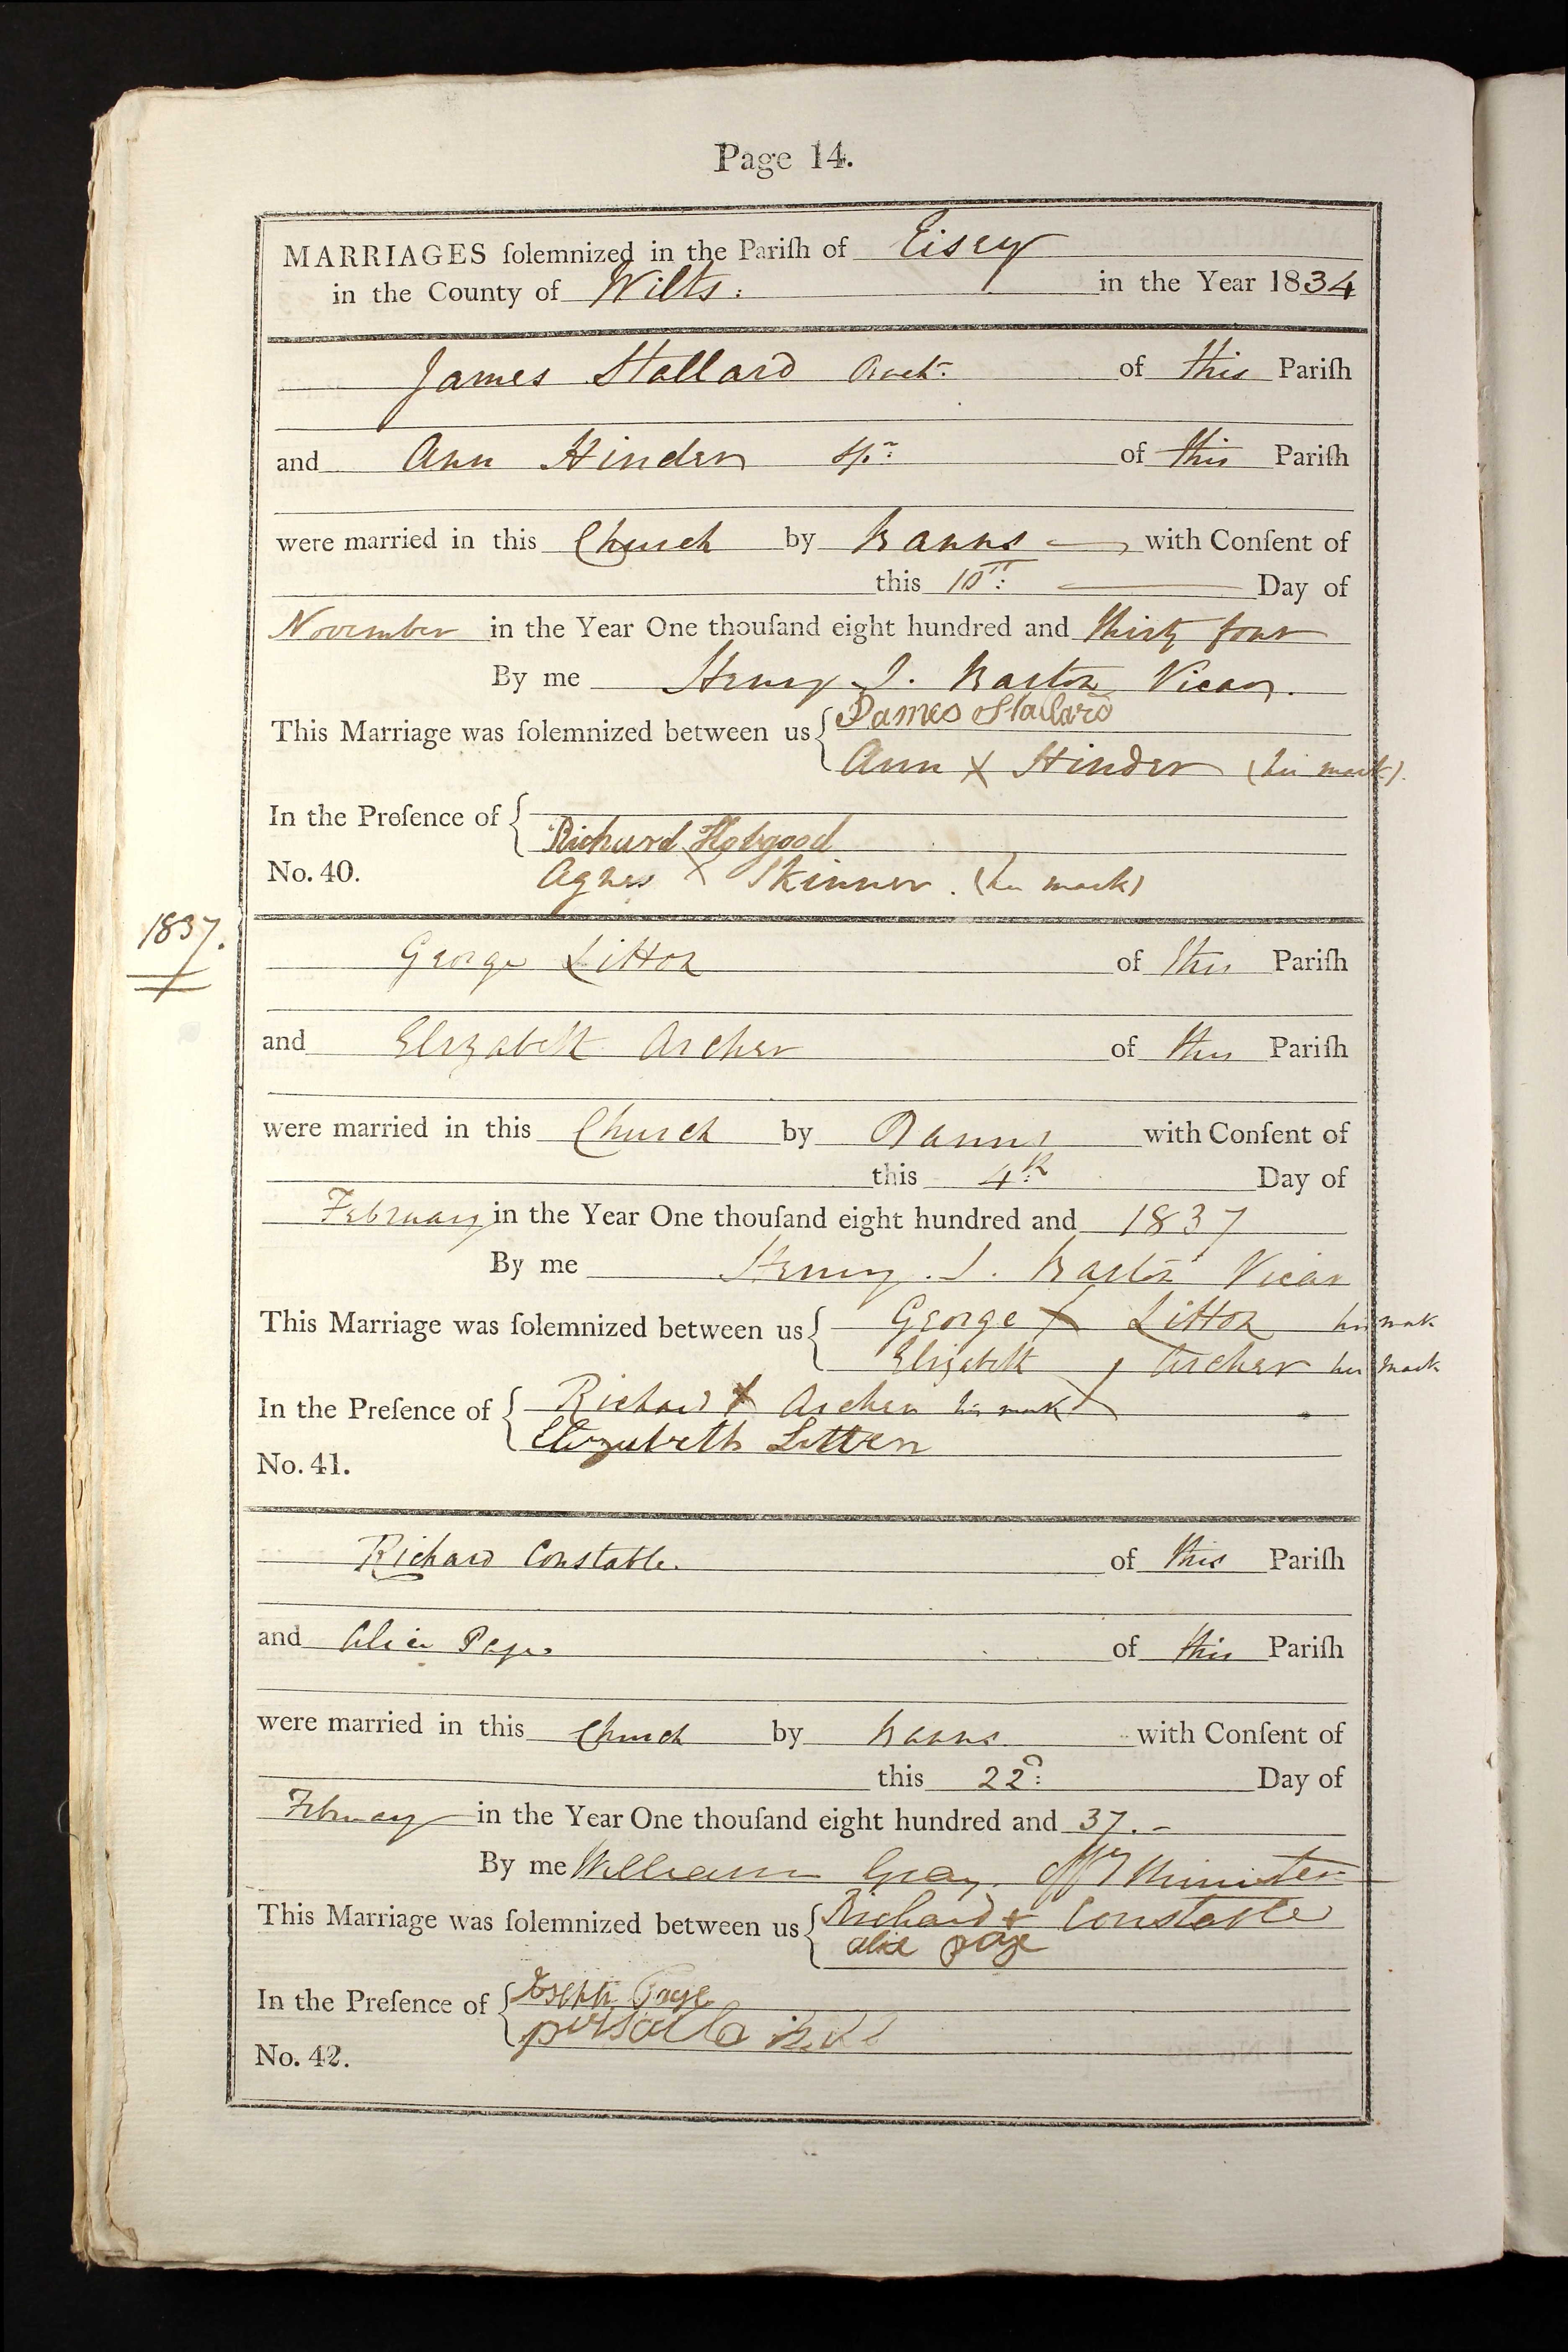 Page 14.
MARRIAGES ſolemnized in the Pariſh of Eisey
in the County of Wilts: in the Year 1834
James Stallard Bach:r of this Pariſh
and Ann Hinder Sp:r of this Pariſh
were married in this Church by Banns with Conſent of
this 10th: Day of
November in the Year One thouſand eight hundred and thirty four
By me Henry J. Barton Vicar.
This Marriage was ſolemnized between us { James Stallard
Ann X Hinder (her mark).
In the Preſence of { Richard Hobgood
Agnes X Skinner. (her mark)
No. 40.
1837.
George Litton of this Pariſh
and Elizabeth Archer of this Pariſh
were married in this Church by Banns with Conſent of
this 4th: Day of
February in the Year One thouſand eight hundred and 1837
By me Henry. J. Barton Vicar
This Marriage was ſolemnized between us { George X Litton his mark
Elizabeth X Archer her mark
In the Preſence of { Richard X Archer his mark
Elizubeth Litten
No. 41.
Richard Constable. of this Pariſh
and Alice Page of this Pariſh
were married in this Church by Banns with Conſent of
this 22d: Day of
February in the Year One thouſand eight hundred and 37.-
By me William Gray. Offg Minister
This Marriage was ſolemnized between us { Richard + Constable
alice page
In the Preſence of { Joseph Page
No. 42.